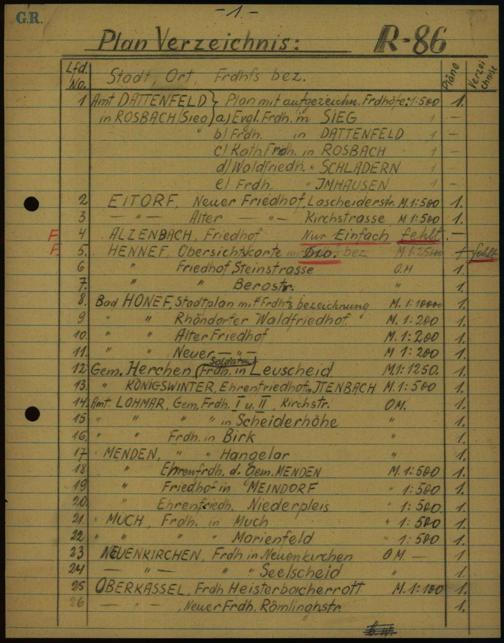 G.R.
- 1. -
Plan Verzeichnis: R-86
Lfd. No. Stadt, Ort, Frdhfs bez. Pläne Verzeichnisse
1 Amt DATTENFELD } Plan mit aufgezeichn. Frdhöfe: 1:500 1.
in ROSBACH (Sieg) a) Evgl. Frdh. in SIEG 1 —
" b) Frdh. in DATTENFELD 1 —
c) Kath Frdh. in ROSBACH 1 —
d) Waldfriedh. " SCHLADERN 1 —
e) Frdh. " IMHAUSEN 1 —
2 EITORF, Neuer Friedhof, Lascheiderstr. M 1:500 1.
3 — " — Alter — " — Kirchstrasse M 1:500 1.
F. 4 ALZENBACH, Friedhof Nur Einfach fehlt. —
F. 5. HENNEF, Übersichtskarte bez. M 1:2500 1 fehlt
6 " Friedhof Steinstrasse O.M 1.
7. " " Berostr. " 1.
8. Bad HONEF, Stadtplan mit Frdhfs bezeichnung M. 1:10000 1.
9 " " Rhöndorfer Waldfriedhof M. 1:200 1.
10. " " Alter Friedhof M 1:200 1.
11. " " Neuer — " — M 1:200 1.
12 Gem. Herchen (Soldaten Frdh. in Leuscheid M. 1:1250. 1.
13. " KÖNIGSWINTER, Ehrenfriedhof, ITTENBACH M. 1:500 1.
14. Amt. LOHMAR, Gem, Frdh. I u. II, Kirchstr. OM. 1.
15 " " " " in Scheiderhöhe " 1.
16. " " Frdh. in Birk " 1.
17 " MENDEN, " " Hangelar " 1.
18 " Ehrenfrdh. d. Gem. MENDEN M. 1:500 1.
19 " Friedhof in MEINDORF " 1:500 1.
20. " Ehrenfriedh, Niederpleis " 1:500 1.
21 " MUCH, Frdh. in Much " 1:500 1.
22 " " " " Marienfeld " 1:500 1.
23 NEUENKIRCHEN, Frdh in Neuenkirchen OM — 1
24 — " — " Seelscheid " 1.
25 OBERKASSEL, Frdh Heisterbacherrott M. 1:100 1.
26 — " — , Neuer Frdh. Römlinghstr. 1.